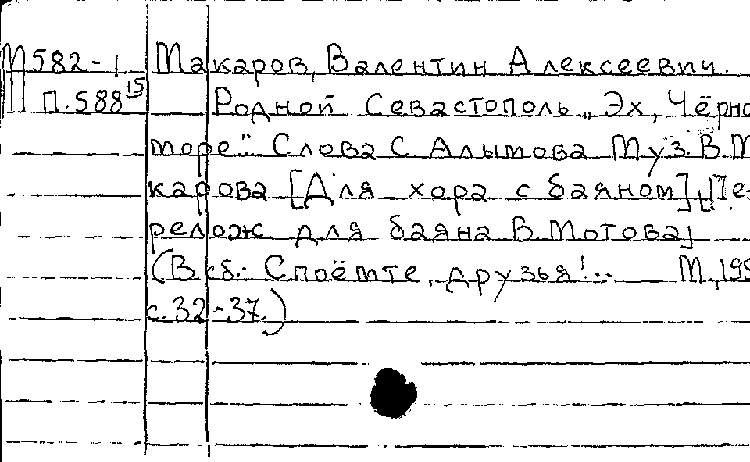 М582-1 Макаров, Валентин Алексеевич.
П.588 15 Родной Севастополь „Эх, Чёрно
море". Слова С Алымова Муз. В. М
карова [Для хора с баяном]. [Пе-
релож для баяна В. Мотова]
(В сб.: Споёмте, друзья!.. М., 195
с. 32-37.)